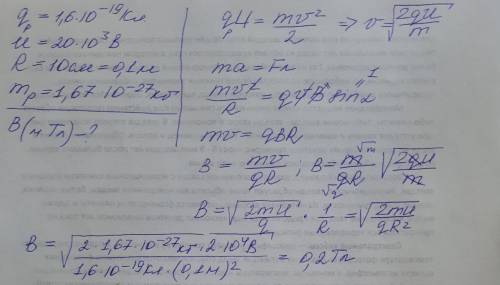 q_p = 1,6·10⁻¹⁹ Кл
U = 20·10³ В
R = 10 см = 0,1 м
m_p = 1,67·10⁻²⁷ кг
B (м Тл) – ?
q_p U = mv²/2 => v = √(2qU/m)
ma = Fл
mv²/R = qvB sinα " 1
mv = qBR
B = mv/qR ; B = m √m/qR √q √(2qU/m)
B = √(2mU/q) · 1/R = √(2mU/qR²)
B = √(2·1,67·10⁻²⁷ кг · 2·10⁴ В/1,6·10⁻¹⁹ Кл·(0,1 м)²) = 0,2 Тл